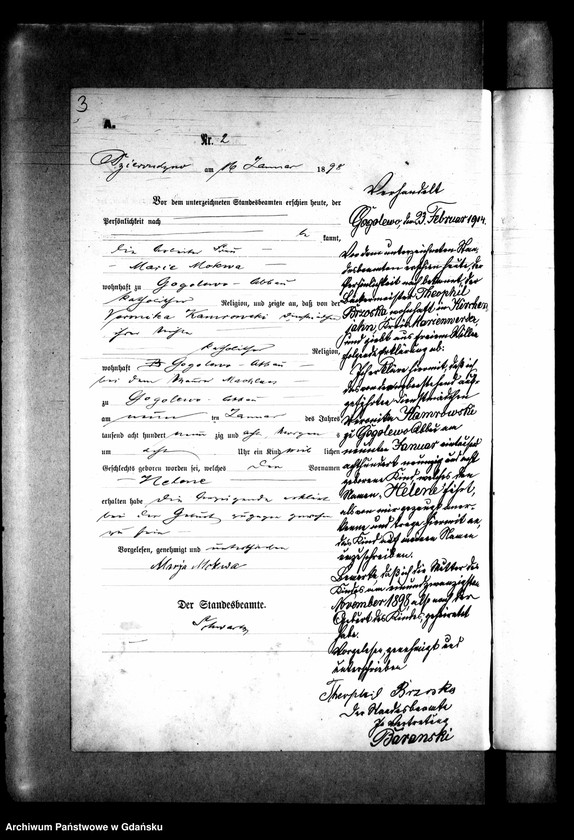 3
A.
Nr. 2
am 16 Januar 1898
Vor dem unterzeichneten Standesbeamten erschien heute, der
Persönlichkeit nach
be kannt,
die Arbeiter Frau
Marie Mokwa
wohnhaft zu Gogolewo-Abbau
katholischer Religion, und zeigte an, daß von der
Veronika Kamrowski
katholischer Religion,
wohnhaft Gogolewo-Abbau
bei dem
zu Gogolewo-Abbau
am neunten Januar des Jahres
tausend acht hundert neun zig und acht
um acht Uhr ein Kind weib lichen
Geschlechts geboren worden sei, welches den Vornamen
Helene
erhalten habe die Anzeigende erklärt
bei der Geburt zugegen gewesen
zu sein
Vorgelesen, genehmigt und unterschrieben
Marja Mokwa
Der Standesbeamte.
Schwartz
Verhandelt
Gogolewo, den 23. Februar 1904.
Vor dem unterzeichneten Stan-
desbeamten erschien heute, der
Persönlichkeit nach bekannt, der
Theophil
Brzoska wohnhaft in Kirchen-
jahn, Kreis Marienwerder,
und giebt aus freiem Willen
folgende Erklärung ab:
Ich erkläre hiermit, daß ich
das von der vorbezeichneten auf-
geführten Dienstmädchen
Veronika Kamrowski
zu Gogolewo Abbau am
neunten Januar eintausend
achthundert neunzig und acht
geborene Kind, welches den
Namen Helene führt,
als von mir gezeugt aner-
kenne, und trage hiermit an,
das Kind auf meinen Namen
umzuschreiben.
Bemerke, daß ich die Mutter des
Kindes am einundzwanzigsten
November 1898, also nach der
Geburt des Kindes, geheiratet
habe.
Vorgelesen, genehmigt und
unterschrieben
Theophil Brzoska
Der Standesbeamte
In Vertretung
Baranski
Archiwum Państwowe w Gdańsku